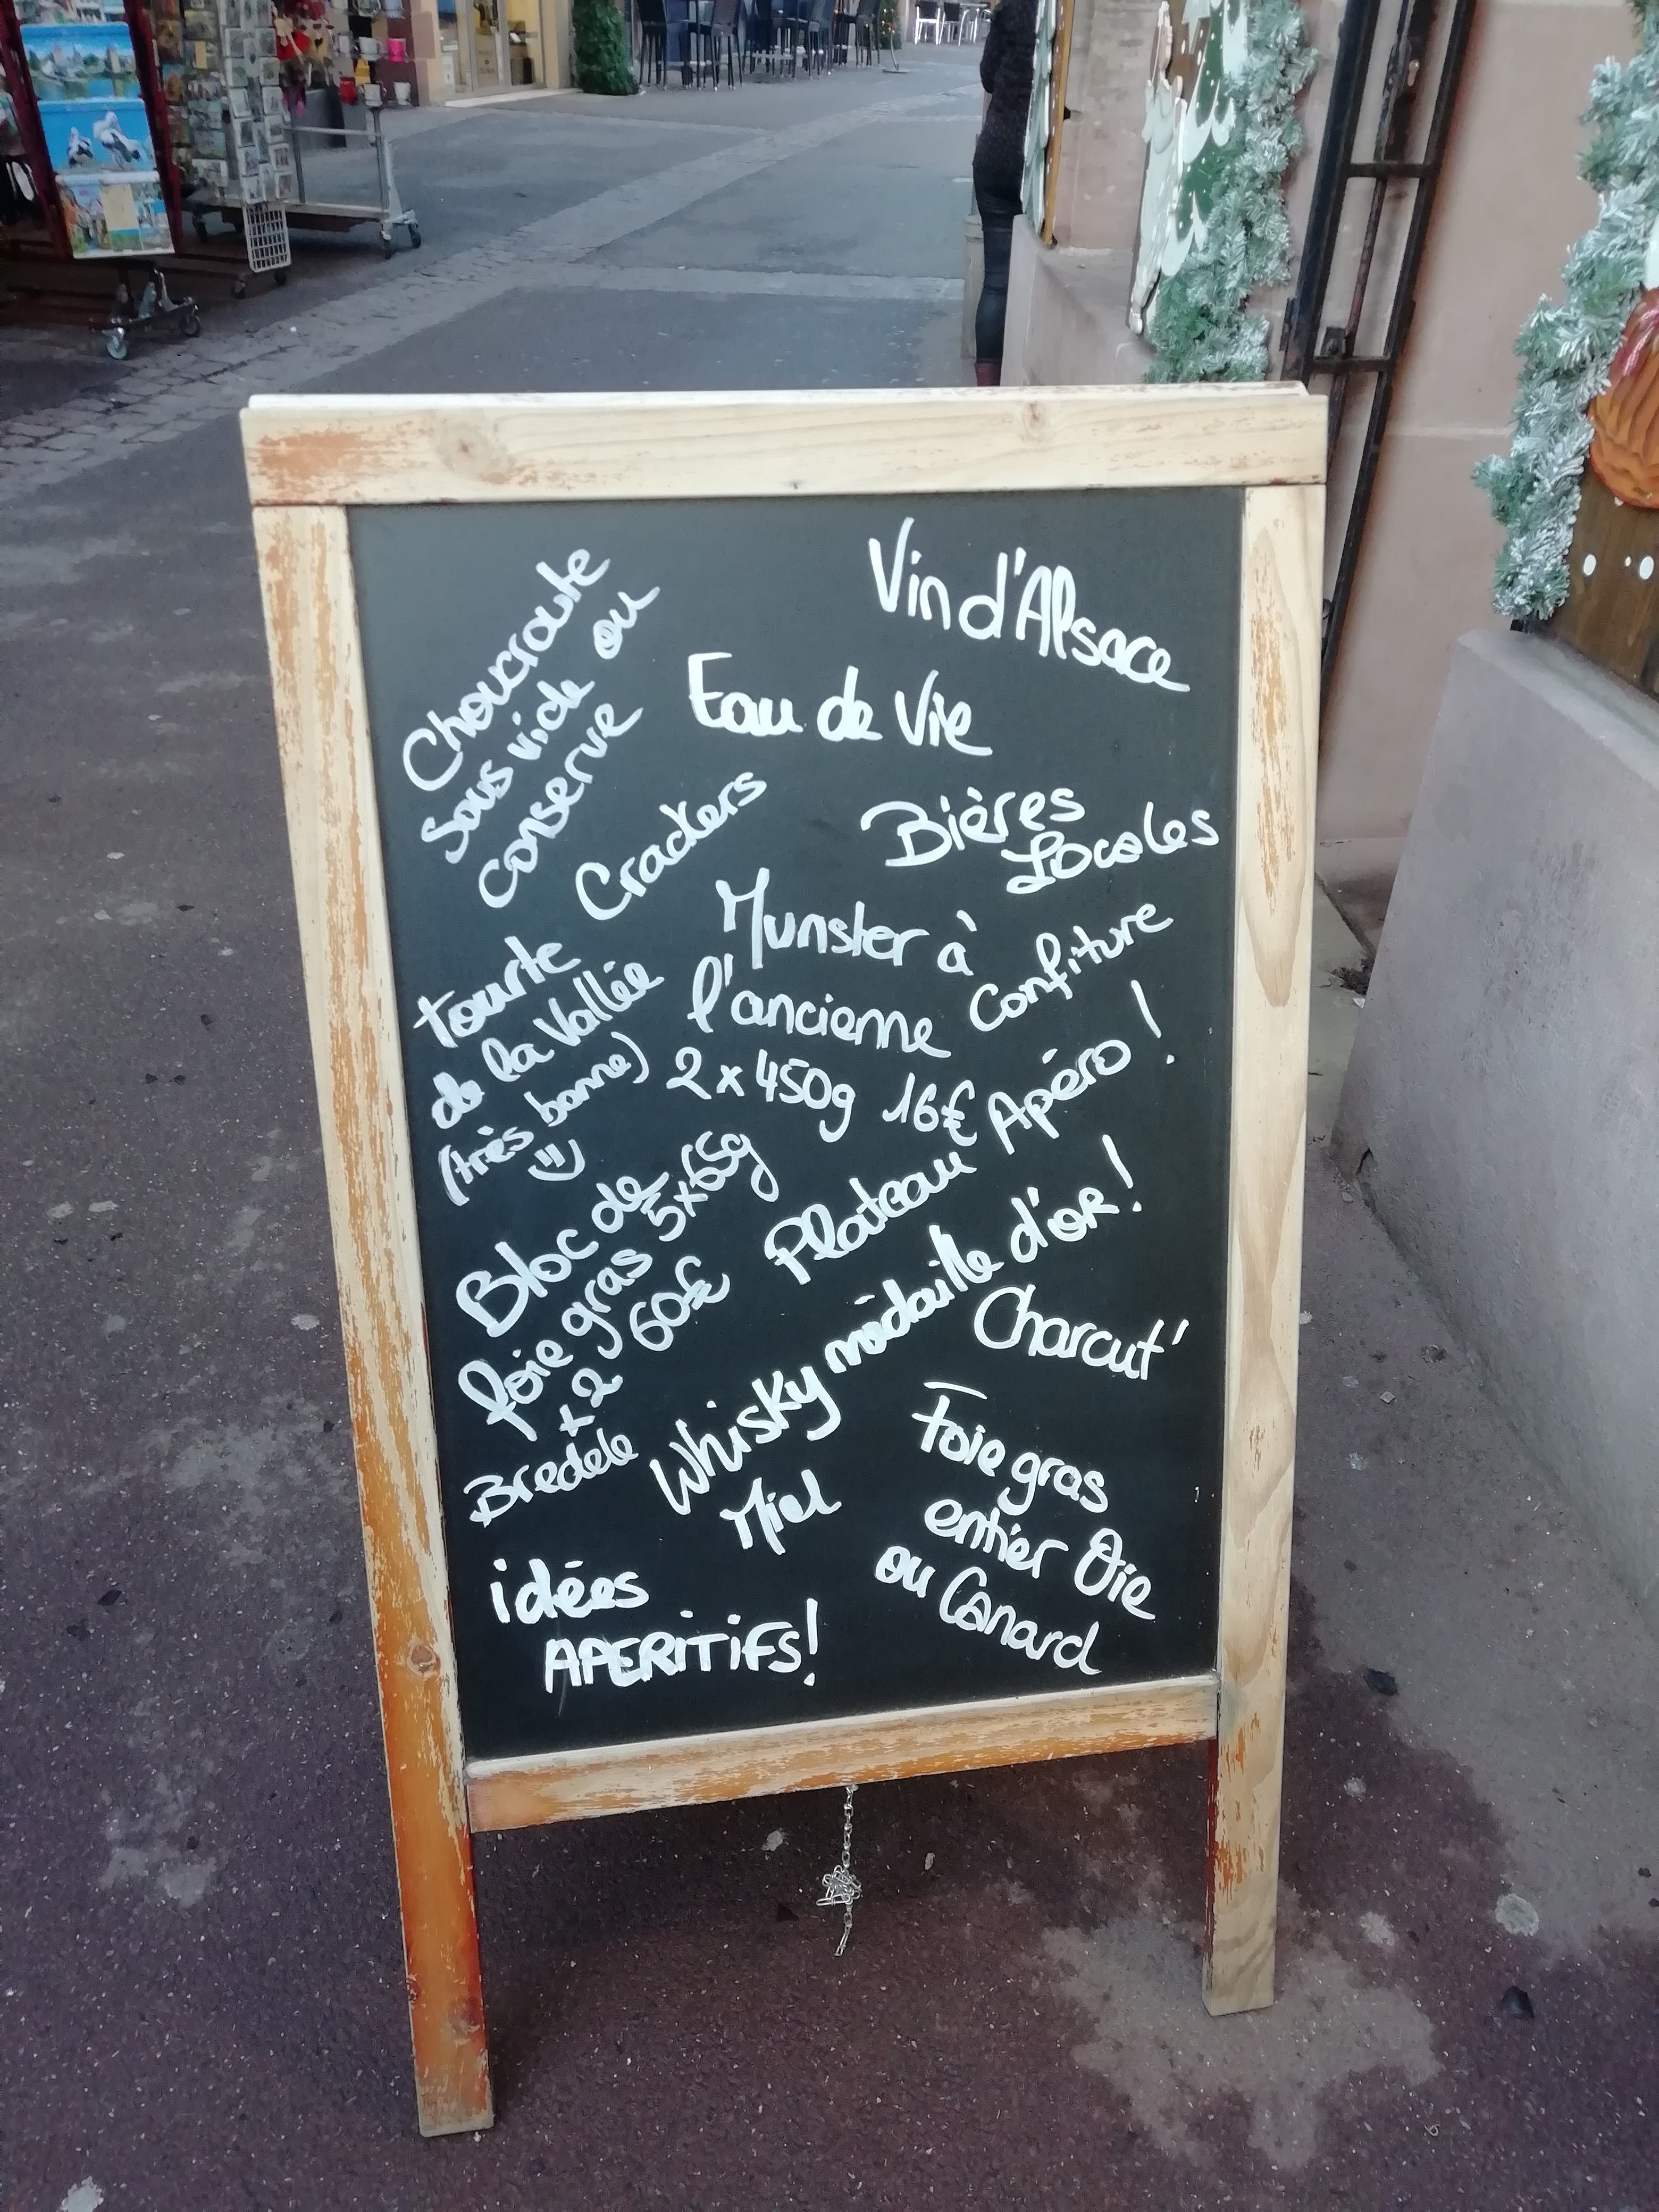 Vin d'Alsace
Choucroute
sous vide ou
conserve
Eau de Vie
Crackers
Bières
Locales
Munster à
l'ancienne
2x450g 16€
Confiture
tourte
de la Vallée
(très bonne)
Plateau Apéro !
Bloc de
foie gras 5x65g
+2 60€
Bredele
Whisky médaille d'or !
Charcut'
Miel
Foie gras
entier Oie
ou Canard
idées
APERITIFS!